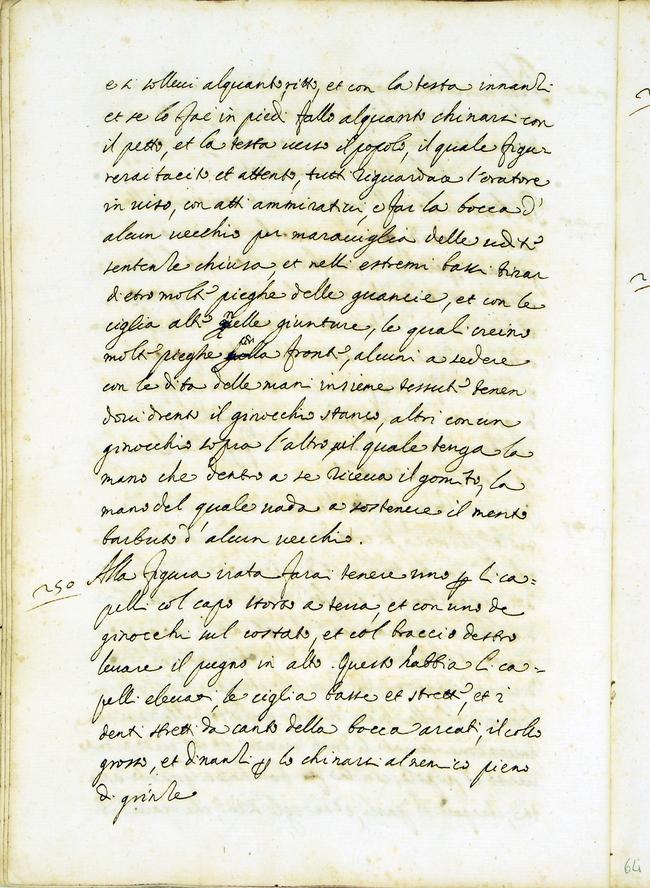 e si sollevi alquanto ritto, et con la testa innanzi
et se lo fae in piedi fallo alquanto chinarsi con
il petto, et la testa verso il popolo, il quale figu=
rerai tacito et attento, tutti riguardar l'oratore
in viso, con atti ammirativi, e far la bocca d'
alcun vecchio per maraviglia delle udite
sentenze chiusa, et nelli estremi bassi tirar
dietro molte pieghe delle guancie, et con le
ciglia alte nelle giunture, le quali creino
molte pieghe con la fronte, alcuni a sedere
con le dita delle mani insieme tessute tenen
dovi drento il ginocchio stanco, altri con un
ginocchio sopra l'altro, sul quale tenga la
mano che dentro a se riceva il gomito, la
mano del quale vada a sostenere il mento
barbuto d'alcun vecchio.
250 Alla figura irata farai tenere uno p li ca=
pelli col capo storto a terra, et con uno de
ginocchi sul costato, et col braccio destro
levare il pugno in alto. Questo habbia li ca=
pelli elevati, le ciglia basse et strette, et i
denti stretti da canto della bocca arcati, il collo
grosso, et dinanzi p lo chinarsi al nemico pieno
di grinze
64